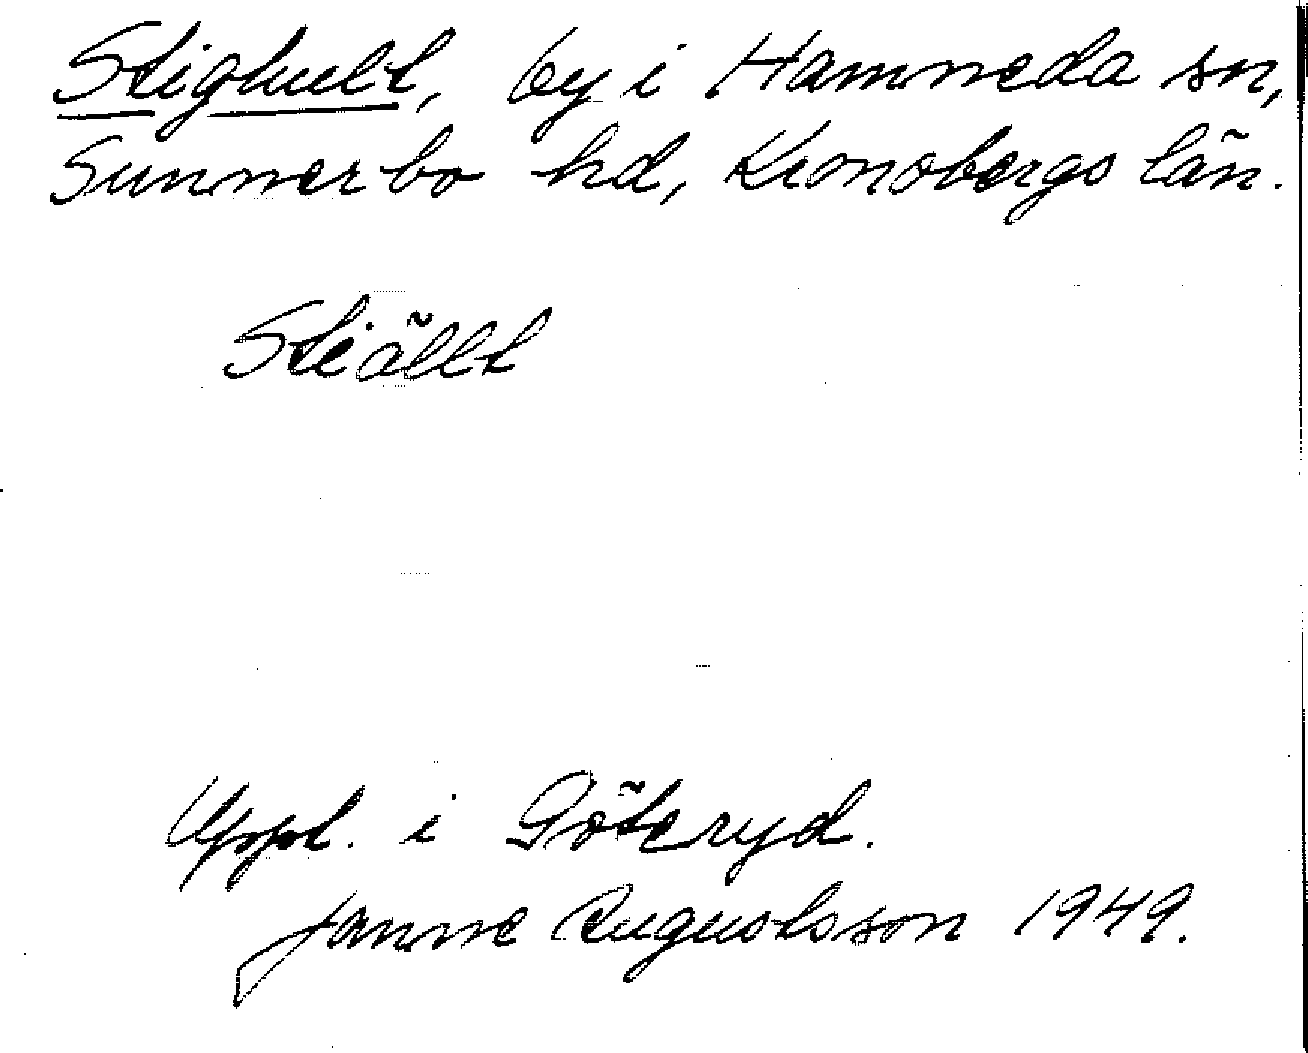 Stighult, by i Hamneda sn,
Sunnerbo hd, Kronobergs län.
Stiällt
Uppt. i Göteryd.
Janne Augustsson 1949.